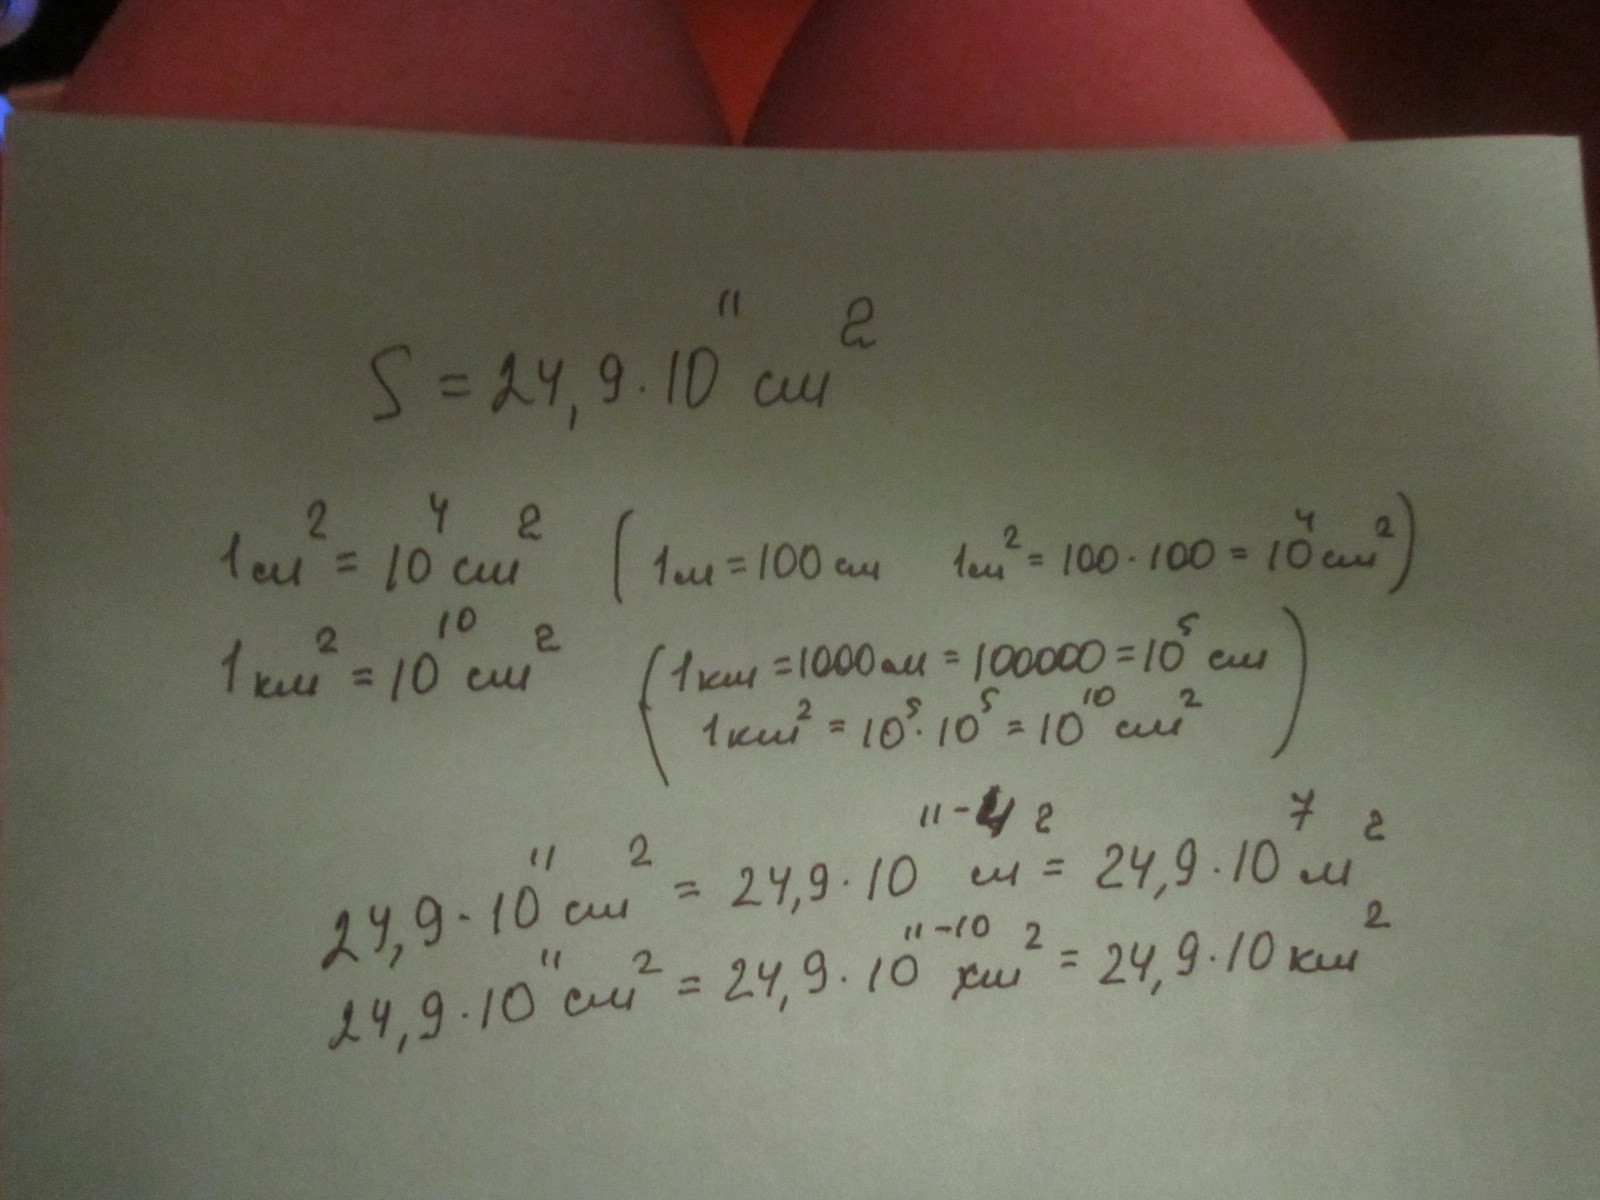 S = 24,9 · 10¹¹ см²
1м² = 10⁴ см² (1м = 100 см 1м² = 100 · 100 = 10⁴ см²)
1км² = 10¹⁰ см² (1км = 1000 м = 100000 = 10⁵ см
1км² = 10⁵ · 10⁵ = 10¹⁰ см²)
24,9 · 10¹¹ см² = 24,9 · 10¹¹⁻⁴ м² = 24,9 · 10⁷ м²
24,9 · 10¹¹ см² = 24,9 · 10¹¹⁻¹⁰ км² = 24,9 · 10 км²